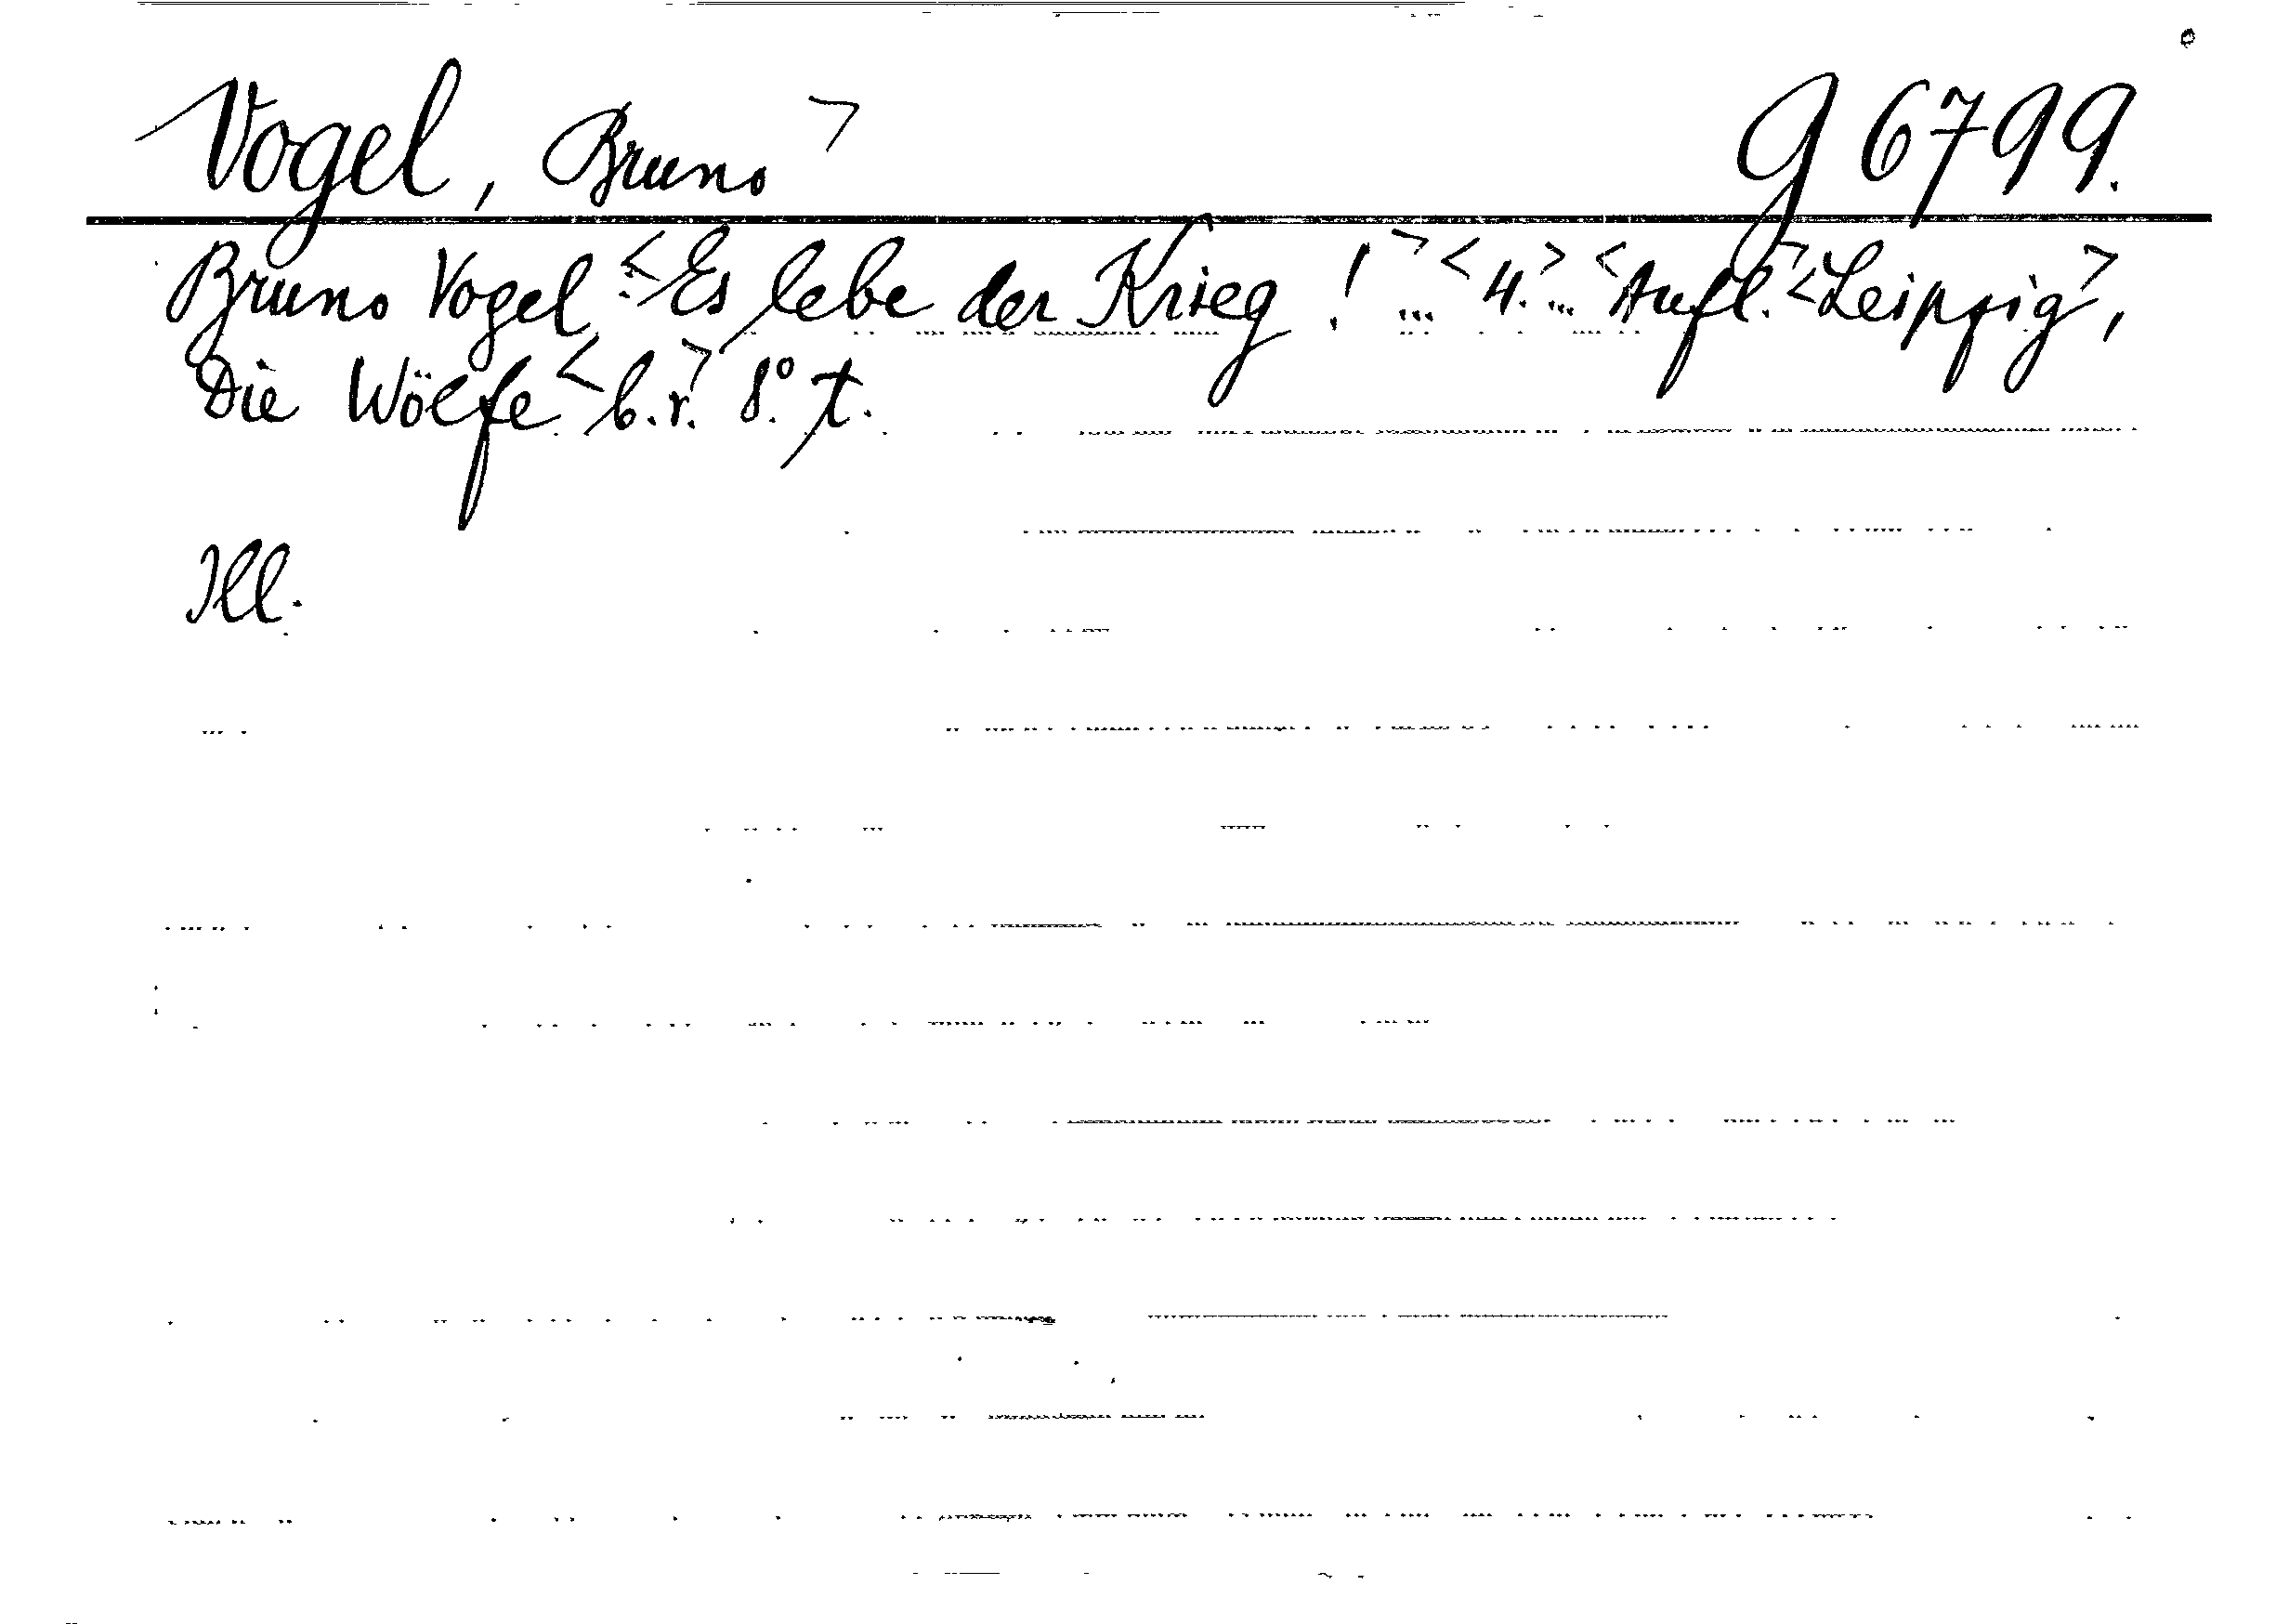 Vogel, Bruno> G 6799.
Bruno Vogel. <:Es lebe der Krieg! ...> <4. ...> <Aufl.> <Leipzig>,
Die Wölfe <b.r.> 8° t.
Ill.